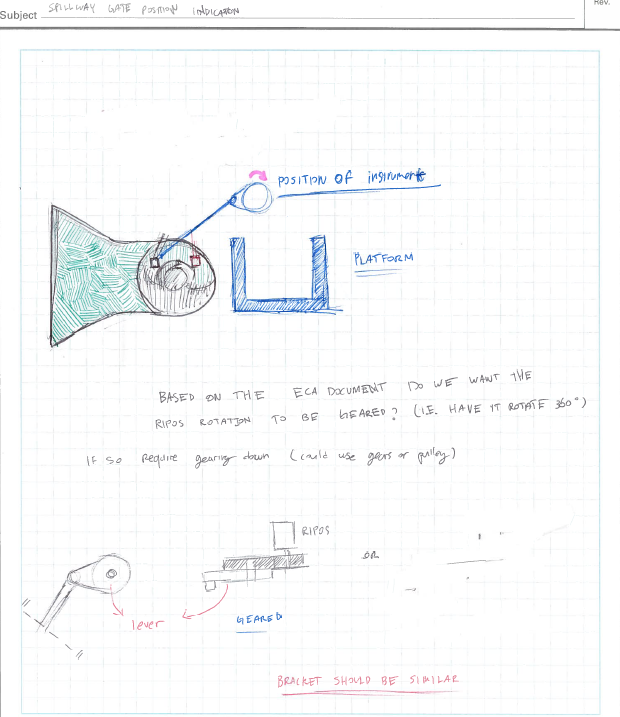 Rev.
Subject SPILLWAY GATE POSITION INDICATION
POSITION OF instrument
PLATFORM
BASED ON THE ECA DOCUMENT DO WE WANT THE
RIPOS ROTATION TO BE GEARED? (I.E. HAVE IT ROTATE 360°)
IF SO Require gearing down (could use gears or pulley)
RIPOS
OR
lever
GEARED
BRACKET SHOULD BE SIMILAR